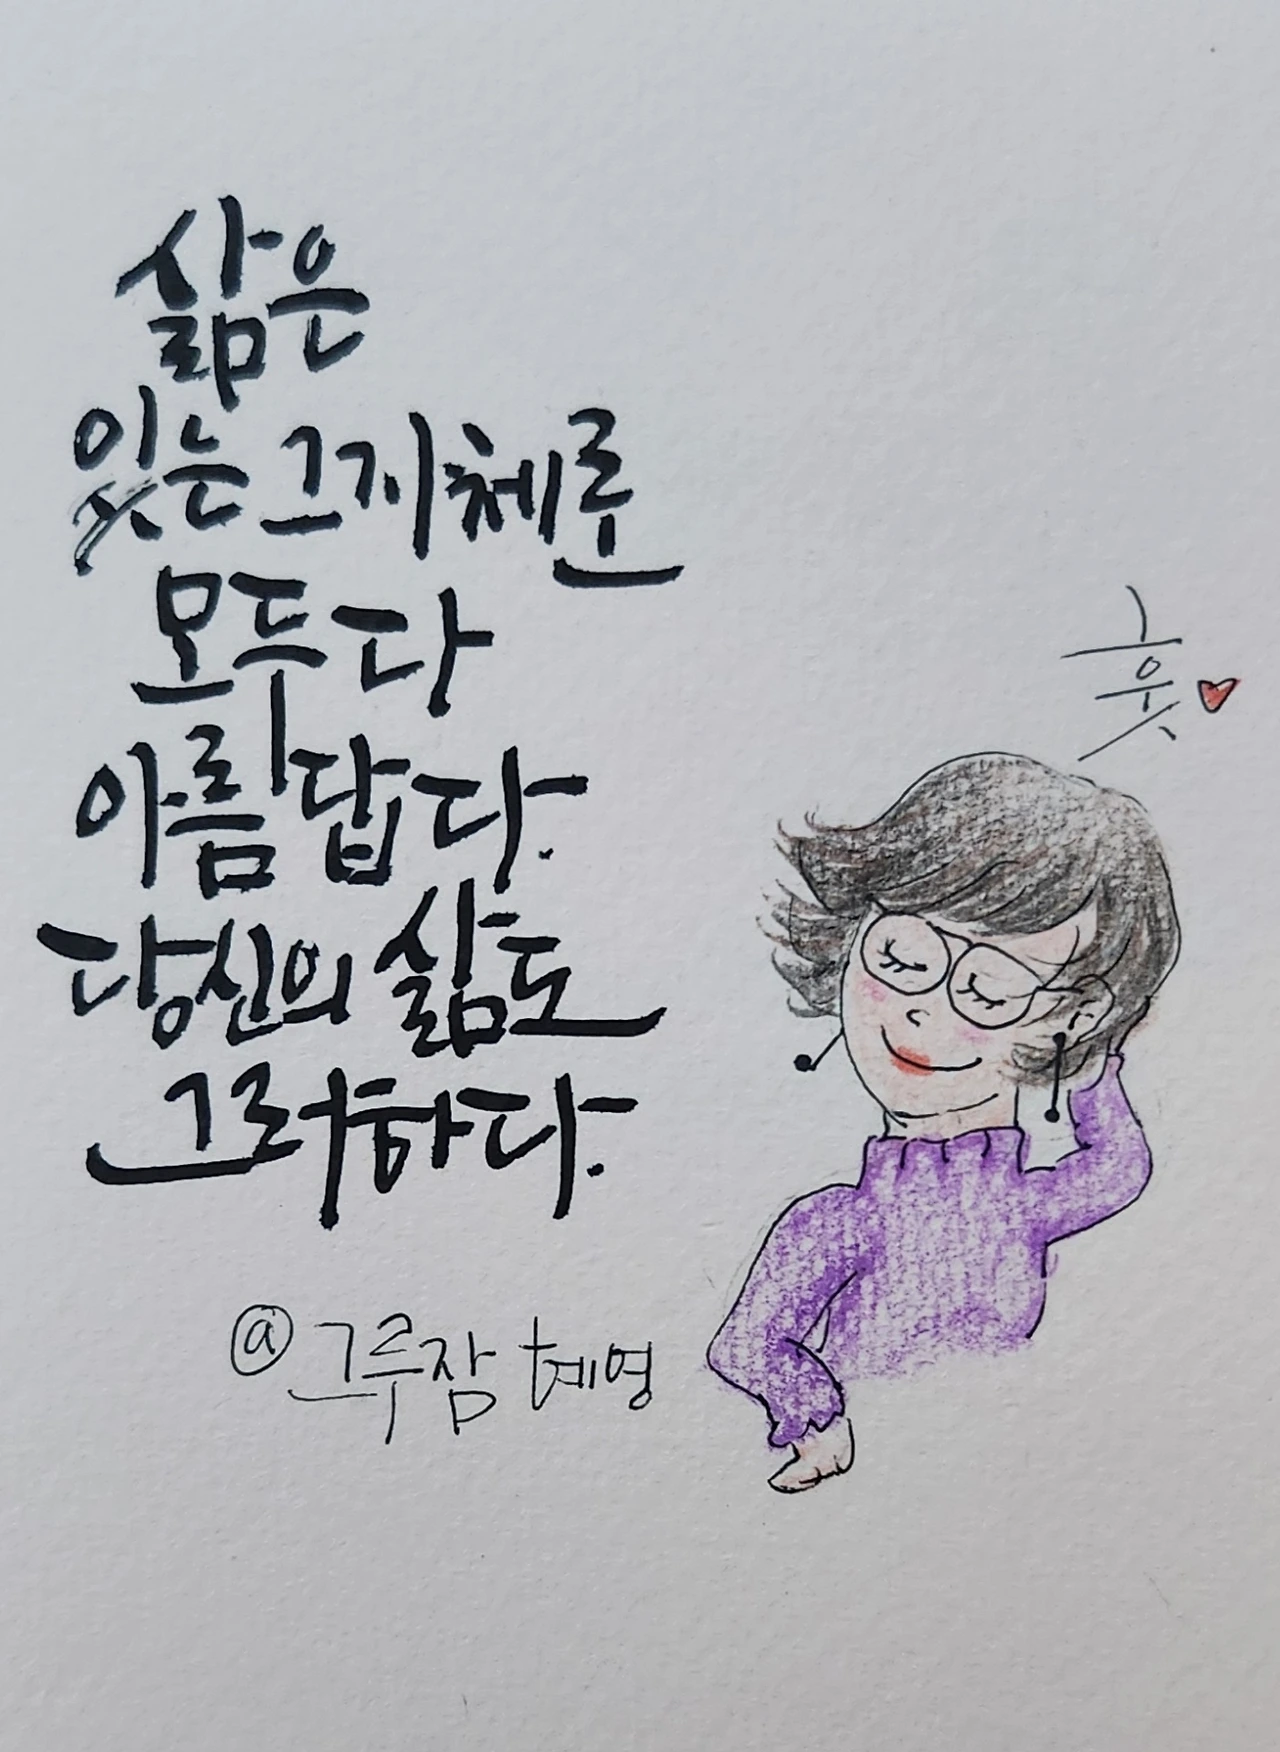 삶은
있는 그 자체로
모두 다
아름답다.
당신의 삶도
그러하다.
훗♥
@그루잠 혜영